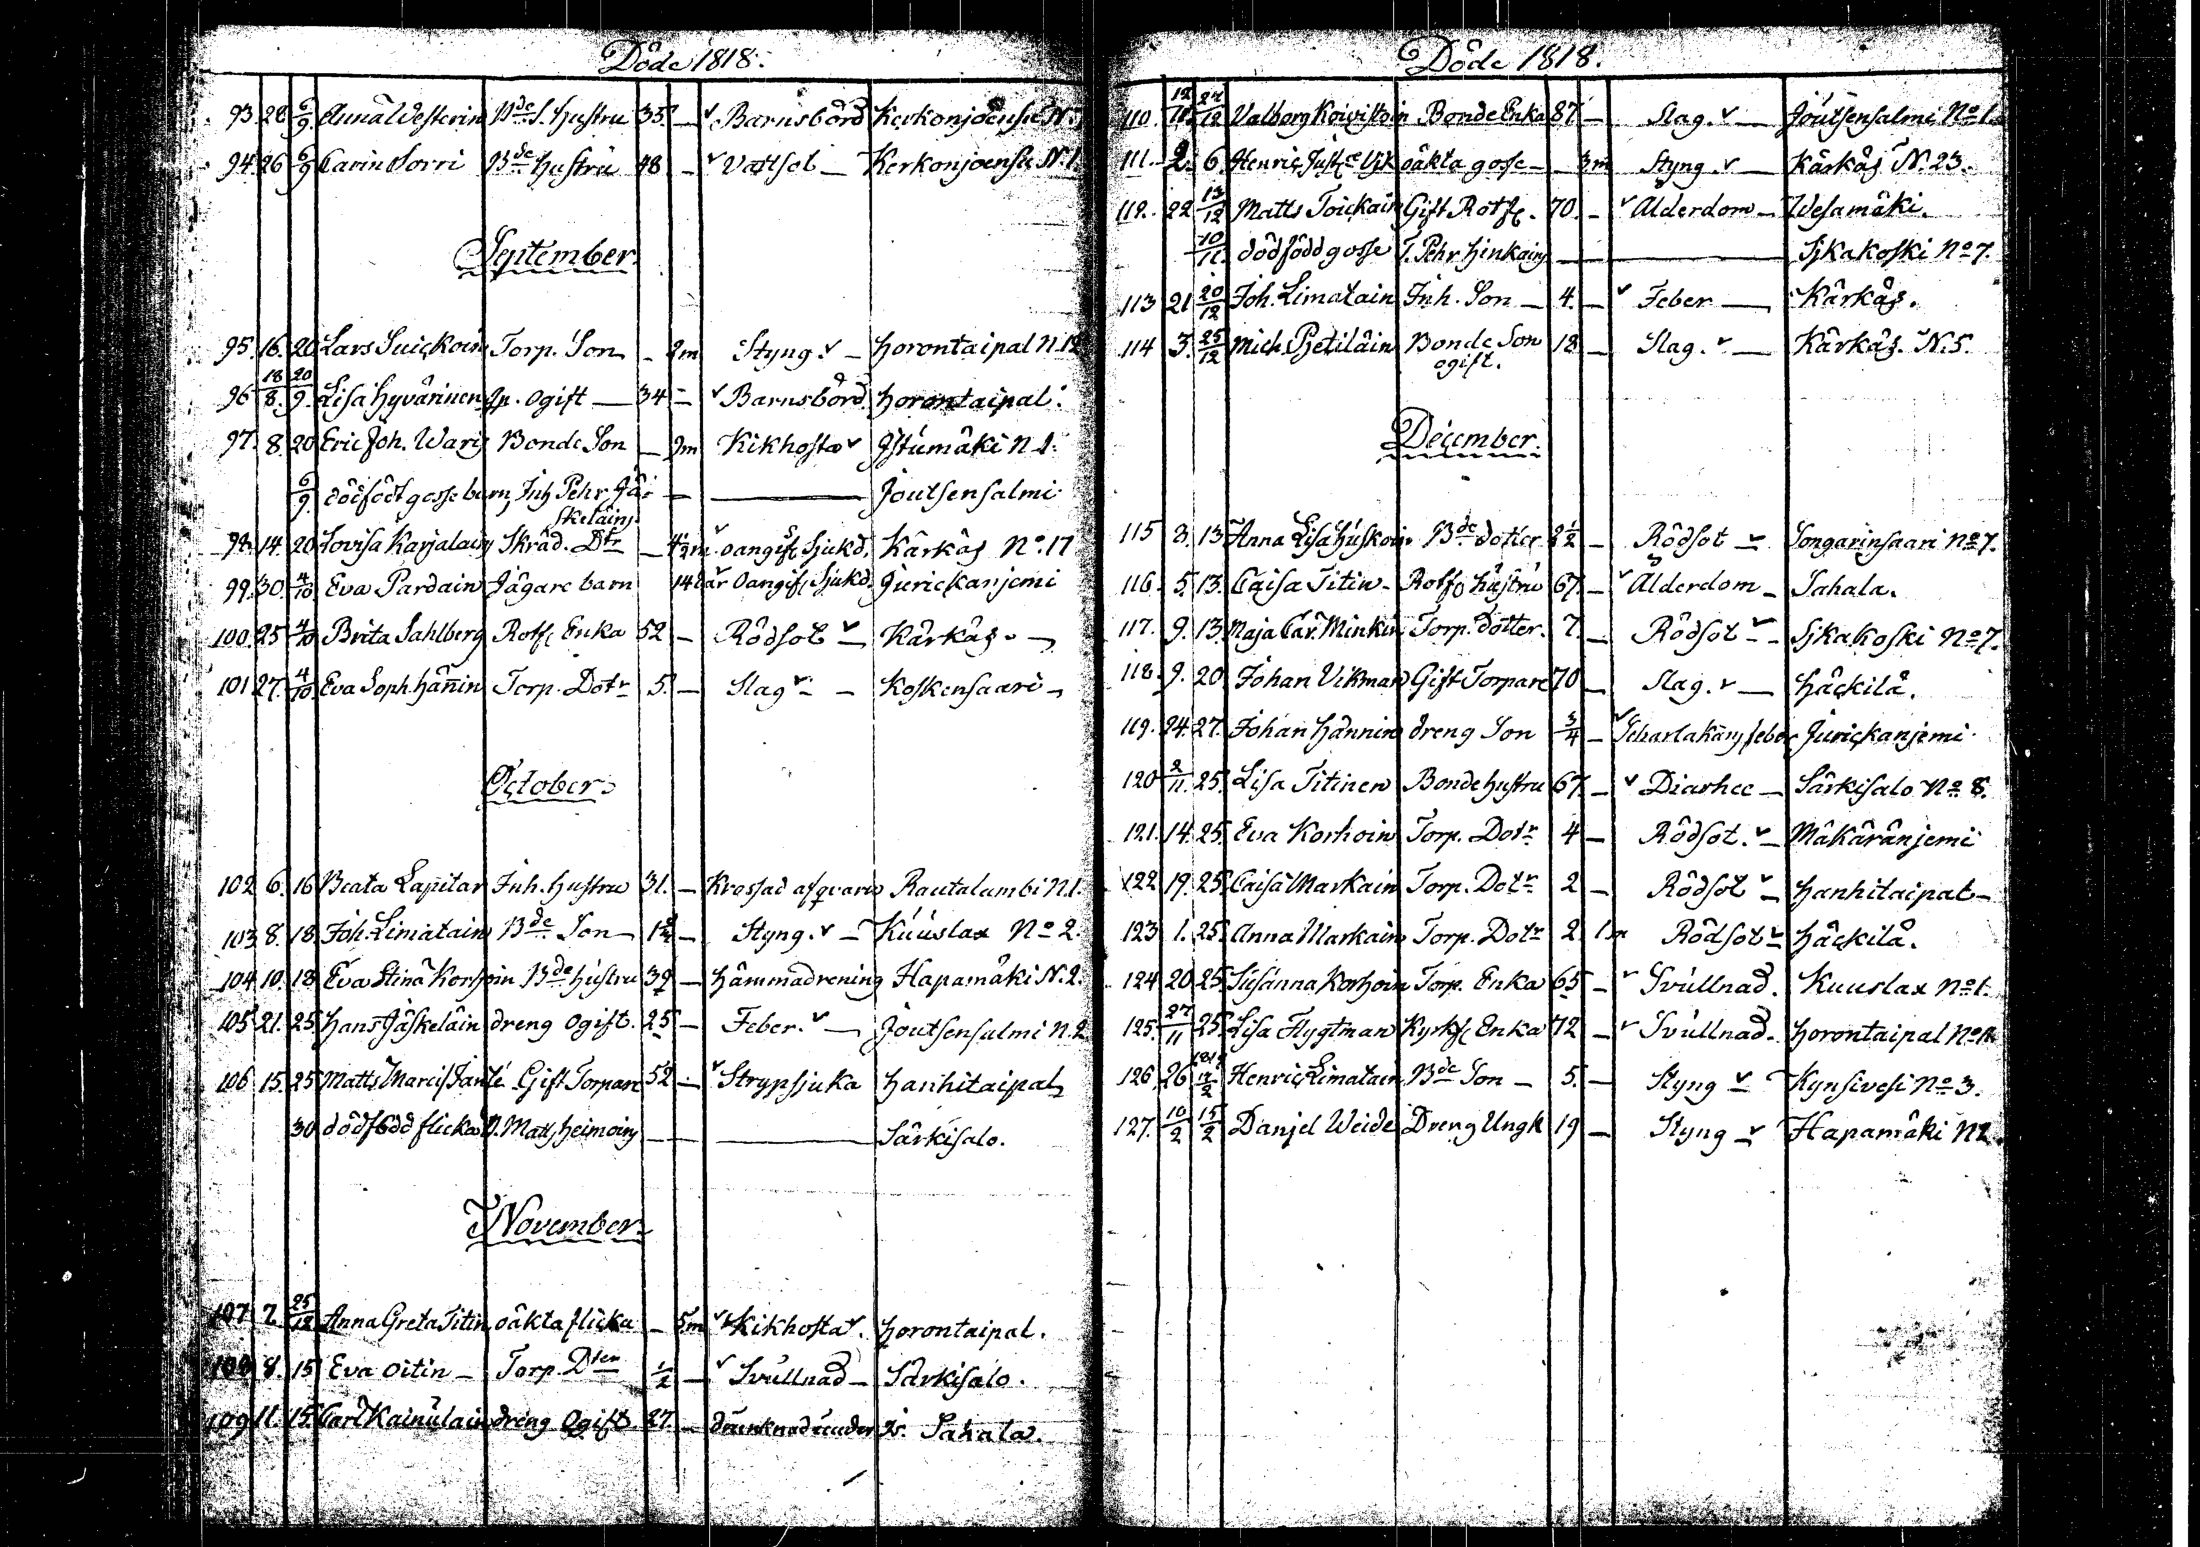 Döde 1818.
93. 28 6/9. Anna Westerin Bde S. hustru 35. — Barnsbörd Kerkonjoensu N.
94 26 6/9 Carin Sorri Bde hustru 48 — Vattsot — Kerkonjoensu N. 1.
September.
95. 16. 20 Lars Suickoin Torp. Son — 2m Styng. — horontaipal N. 12
96 18/8. 20/9. Lisa Hyvärinen Jp. ogift — 34 — Barnsbörd. horontaipal.
97. 8. 20 Eric Joh. Waris Bonde Son — 2m Kikhosta Istumäki N 1.
6/9. dödfödt gossebarn, Inh Pehr Jä- — — Joutsensalmi
skelains
98. 14. 20 Lovisa Karjalain Skräd. Dtr — 4 1/2 m. oangifv. Sjukd. Kärkäs No. 17
99. 30. 4/10 Eva Pardain Jägare barn 14 år oangifv. Sjukd. Jurickanjemi
100. 25 4/10 Brita Sahlberg Rotf. Enka 52 — Rödsot — Kärkäs. —
101 27. 4/10. Eva Soph. Hännin Torp. Dotr 5. — Slag — Koskensaari —
October.
102 6. 16 Beata Lapitar Inh. hustru 31. — Krossad af qvarn Rautalambi N. 1.
103 8. 18. Joh. Limatain Bde Son — — Styng. — Kuuslax No 2.
104 10. 18 Eva Stina Korhoin Bde hustru 39 — hämmadrening Hapamäki N. 2.
105 21. 25 Hans Jäskeläin dreng Ogift. 25 — Feber. — Joutsensalmi N. 2
106 15. 25 Matts Gift Torpare 52 — Strypsjuka hanhitaipal
30 dödfödd flicka Matts heimoins — — Särkisalo.
November.
107 7. 25/12 Anna Greta Titin oäkta flicka — 5m Kikhosta. horontaipal.
108 8. 15 Eva Oitin — Torp. Dter 1/2 — Svullnad — Särkisalo.
109 11. 15. Carl Kainulain dreng Ogift 27. — drunknad Sahala.
Döde 1818.
110. 27/12 Valborg Koivistoin Bonde Enka 87 — Slag. — Joutsensalmi No 1.
111. 2. 6. Henric oäkta gosse — 3m Styng. — Kärkäs N. 23.
112. 22 13/12 Matts Toickain Gift Rotf. 70. — Ålderdom — Wesamäki.
10/11. dödfödd gosse T. Pehr Hinkains — — Sjkakoski No 7.
113 21 20/12 Joh. Limatain Inh. Son — 4. — Feber — Kärkäs.
114 3. 25/12 Mich. Pjetiläin Bonde Son 18 — Slag. — Kärkäs. N. 5.
ogift.
December.
115 3. 13 Anna Lisa Huskoin Bde dotter 2 1/2 — Rödsot — Songarinsaari No 7.
116. 5. 13. Caisa Titin — Rotf. hustru 67. — Ålderdom — Sahala.
117. 9. 13. Maja Car. Minkin Torp. dotter. 7. — Rödsot — Sjkakoski No 7.
118. 9. 20 Johan Vikman Gift Torpare 70 — Slag. — häckilä.
119. 24. 27. Johan Hännin dreng Son 3/4 — Scharlakans feber Jurickanjemi
120 2/11. 25. Lisa Titinen Bonde hustru 67. — Diarhee — Särkisalo No 8.
121. 14. 25. Eva Korhoin Torp. Dotr 4 — Rödsot. — Mäkäränjemi
122 19. 25. Caisa Markain Torp. Dotr 2 — Rödsot — hanhitaipal —
123 1. 25. Anna Markain Torp. Dotr 2 1m Rödsot — häckilä.
124 20 25. Susanna Korhoin Torp. Enka 65 — Svullnad. Kuuslax No 1.
125. 27/11 25. Lisa Flygtman Kyrkf. Enka 72 — Svullnad. horontaipal No
126 26 1819 Henric Limatain Bde Son — 5. — Styng — Kynsivesi No 3.
127. 10/2 15/2 Danjel Weide Dreng Ungk 19 — Styng — Hapamäki